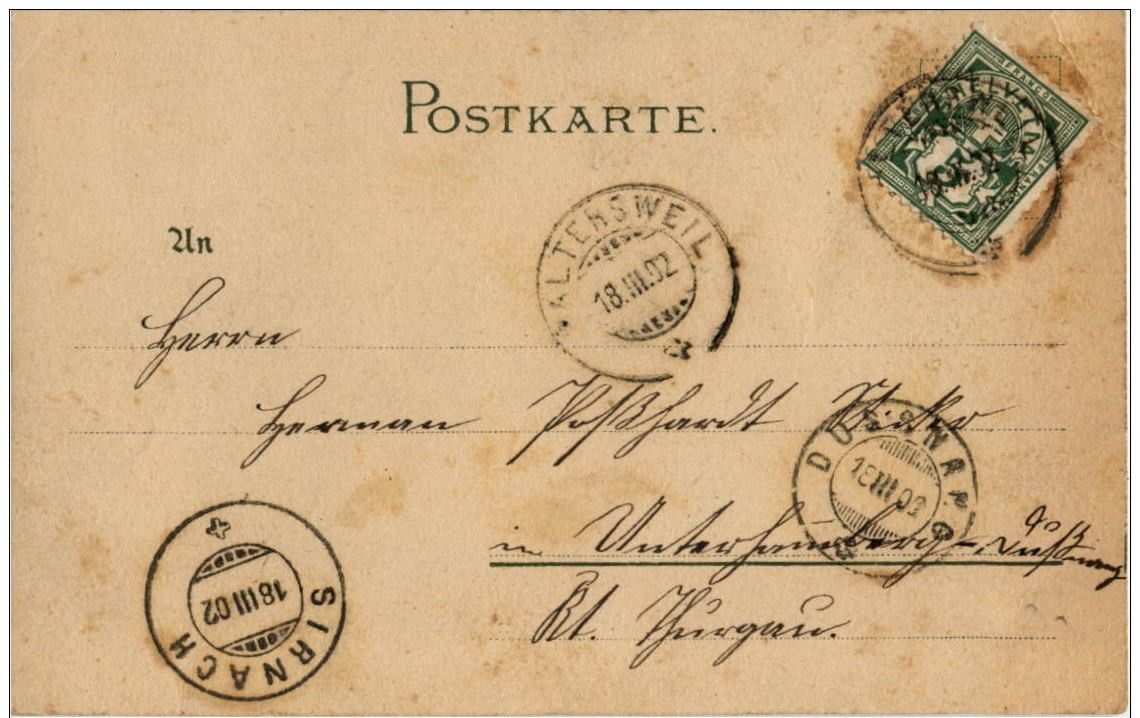 POSTKARTE.
HELVETIA
FRANCO
ALTERSWEIL
18.III.02
An
Herrn
Herman Poßhardt
DUSSNANG
18 III 02
in Unterhaumberg - Dußnang
SIRNACH
18 III 02
Kt. Thurgau.